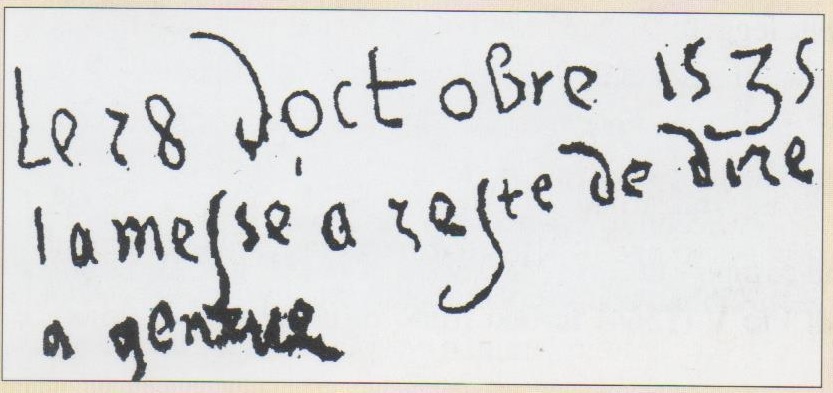 Le 28 d'octobre 1535
la messe a reste de dire
a geneve